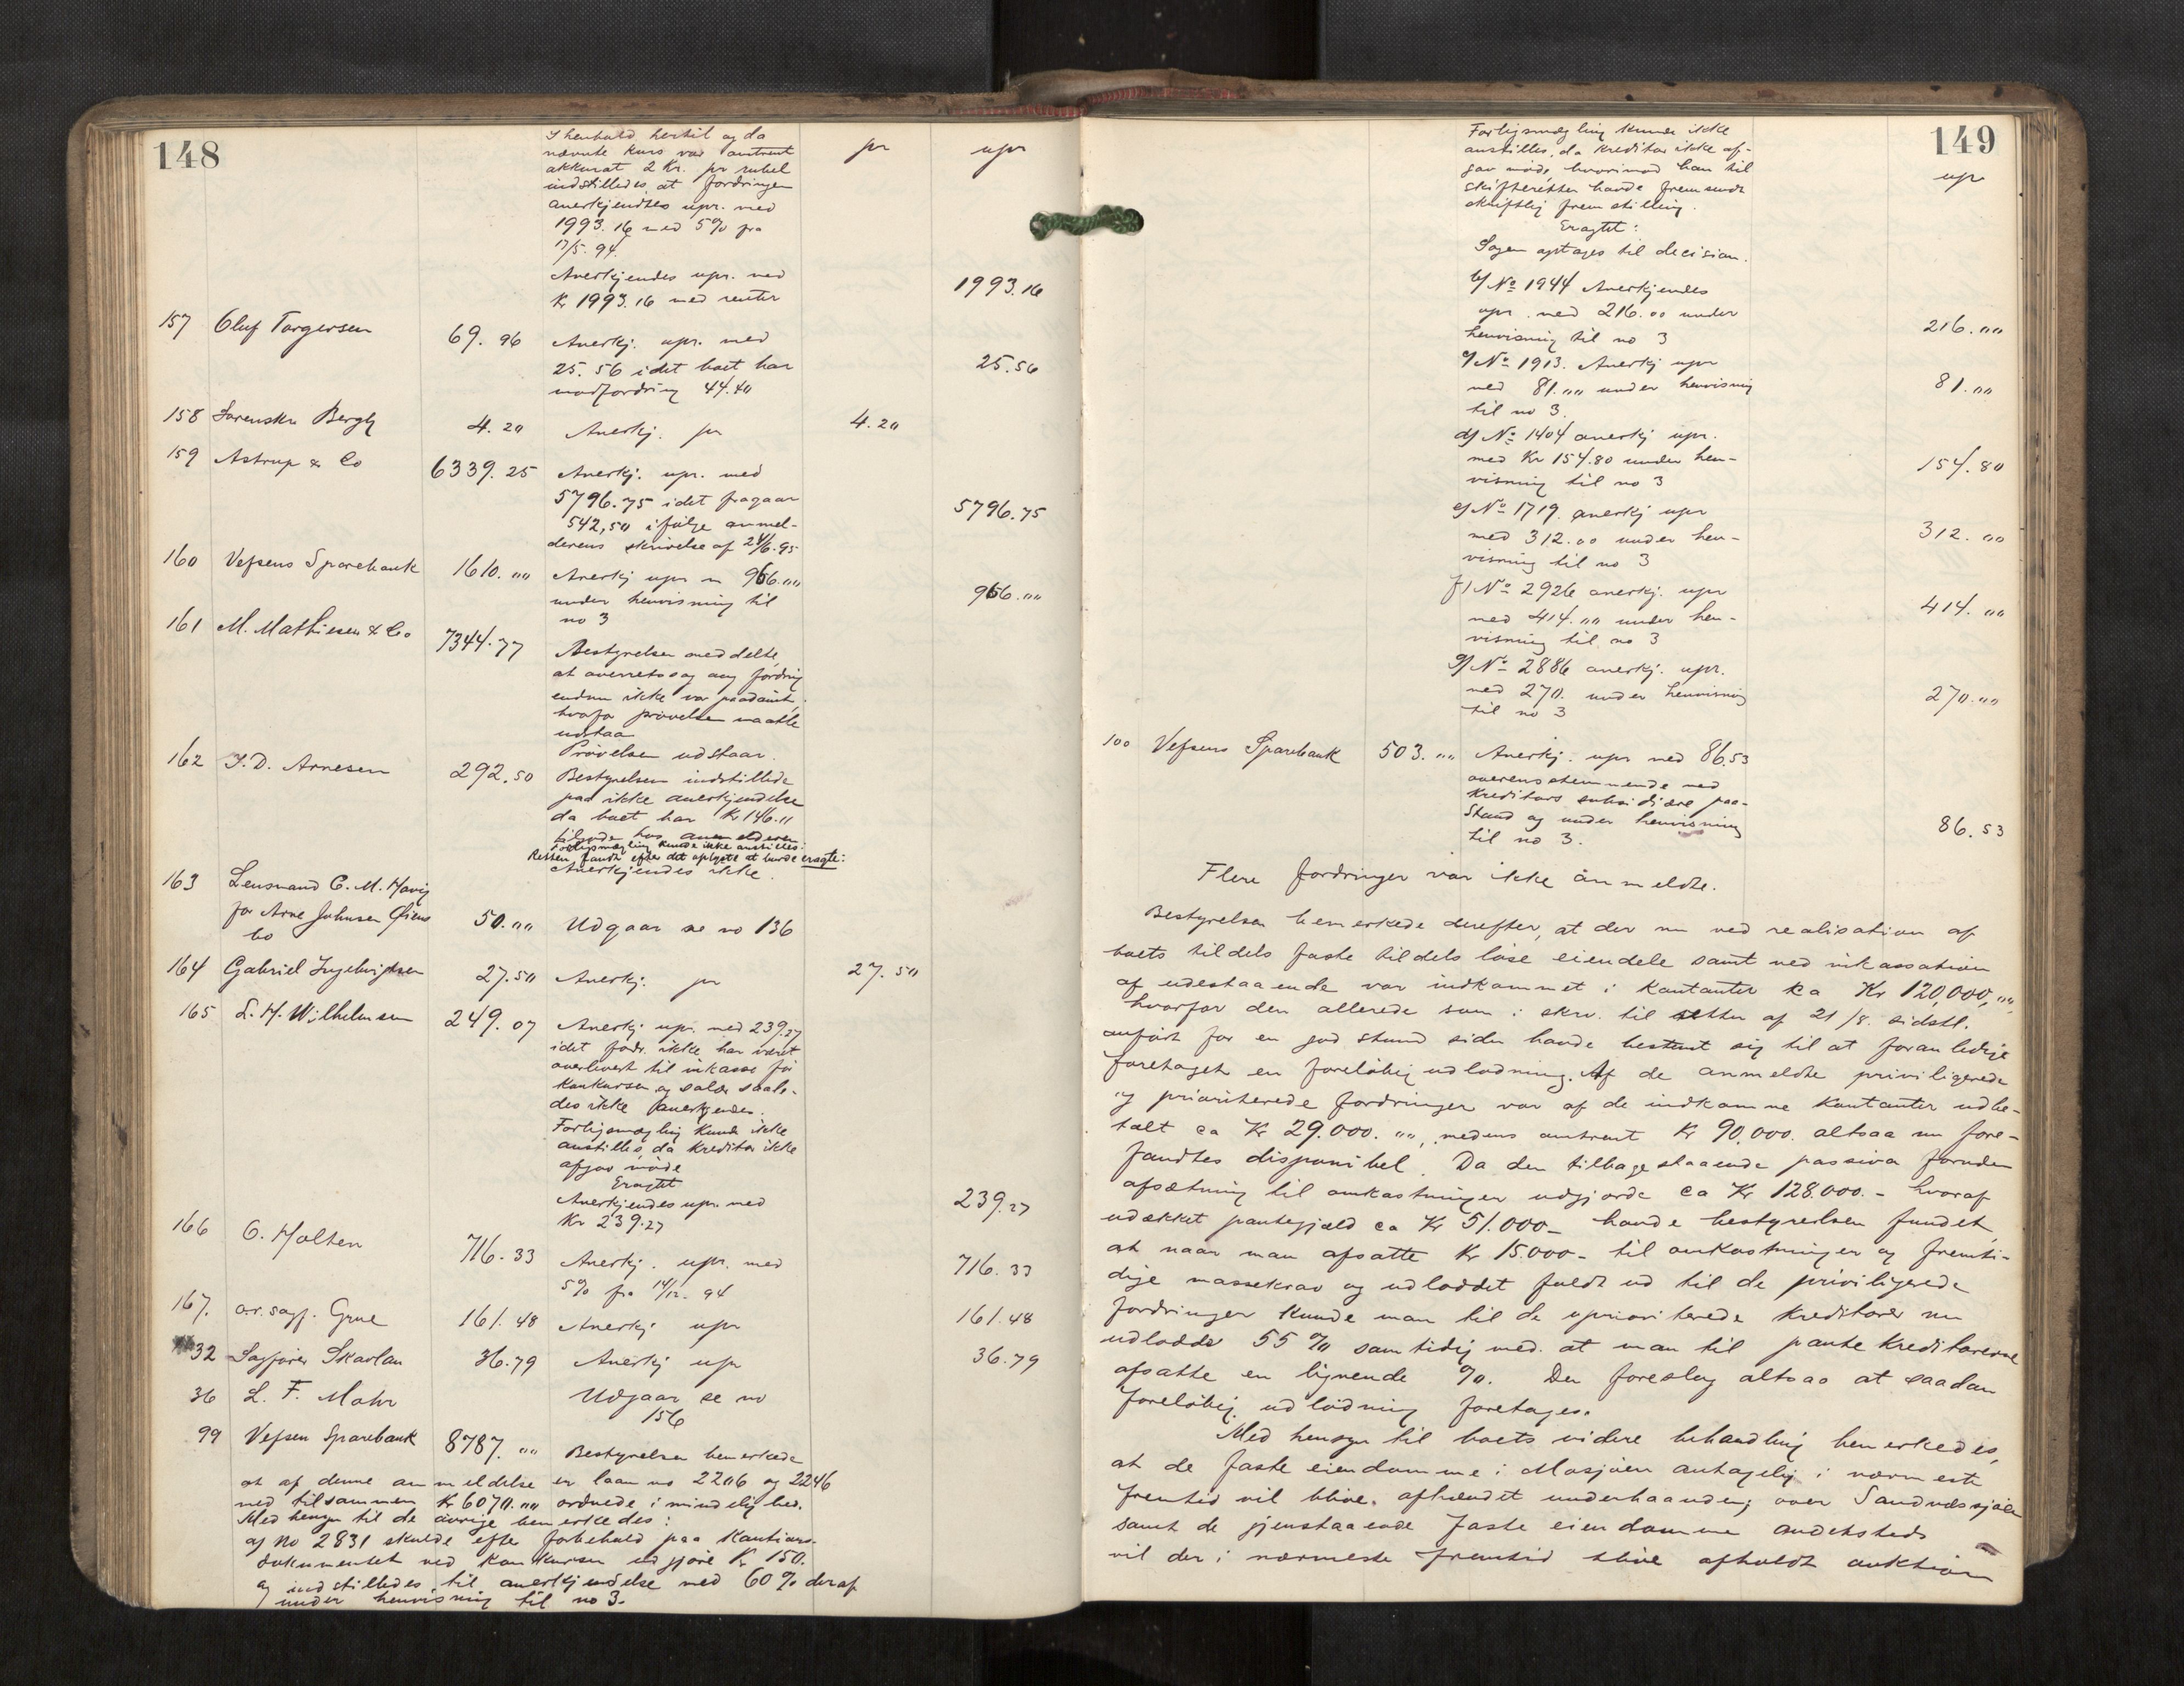 148
pr
upr
I henhold hertil og da
nævnte kurs var omtrent
akkurat 2 Kr. pr rubel
indstilledes at fordringen
anerkjendtes upr. med
1993.16 med 5% fra
17/5. 94.
Anerkjendes upr. med
Kr 1993.16 med renter 1993.16
157 Oluf Torgersen 69.96 Anerkj. upr. med
25.56 idet boet har 25.56
modfordring 44.40
158 Sorenskr Bergh 4.20 Anerkj. pr 4.20
159 Astrup & Co 6339.25 Anerkj. upr. med
5796.75 idet fragaar 5796.75
542,50 ifølge anmel-
derens skrivelse af 24/6.95
160 Vefsens Sparebank 1610."" Anerkj upr m 966.""
under henvisning til 966.""
no 3
161 M. Mathiesen & Co 7344.77 Bestyrelsen meddelte,
at overretssag ang fordring
endnu ikke var paadømt,
hvorfor prøvelsen maatte
udstaa
Prøvelsen udstaar.
162 J.D. Arnesen 292.50 Bestyrelsen indstillede
paa ikke anerkjendelse
da boet har Kr 146.11
tilgode hos anmelderen
Forligsmægling kunde ikke anstilles.
Retten fandt efter det oplyste at burde eragte:
Anerkjendes ikke.
163 Lensmand C. M. Havig
for Arne Johnsen Øiens 50."" Udgaar se no 136
bo
164 Gabriel Ingebrigtsen 27.50 Anerkj. pr 27.50
165 L. H. Wilhelmsen 249.07 Anerkj upr. med 239.27
idet fodr. ikke har været
overlevert til inkasso før
konkursen og salær saale-
des ikke anerkjendes.
Forligsmægling kunde ikke
anstilles, da kreditor ikke
afgav møde
Eragtet
Anerkjendes upr. med 239.27
Kr 239.27
166 O. Holten 716.33 Anerkj. upr. med 716.33
5% fra 14/12. 94
167. o.r.sagf. Grue 161.48 Anerkj upr 161.48
32 Sagfører Skavlan 36.79 Anerkj upr 36.79
36 L. F. Mohr Udgaar se no
156
99 Vefsen Sparebank 8787."" Bestyrelsen bemerkede
at af denne anmeldelse er laan no 2206 og 2246
med tilsammen Kr 6070."" ordnede i mindelighed.
Med hensyn til de øvrige bemerkedes:
a) No 2831 skulde efter forbehold paa kautions-
dokumentet ved konkursen udgjøre Kr 150.
og indstilledes til anerkjendelse med 60% deraf
under henvisning til no 3.
149
upr
Forligsmægling kunde ikke
anstilles, da kreditor ikke af-
gav møde, hvorimod han til
skifteretten havde fremsendt
skriftlig fremstilling.
Eragtet:
Sagen optages til decision.
b) No 1944 Anerkjendes
upr. med 216.00 under
henvisning til no 3 216.""
c) No 1913. Anerkj upr
med 81."" under henvisning 81.""
til no 3.
d) No 1404 anerkj upr.
med Kr 154.80 under hen- 154.80
visning til no 3
e) No 1719. anerkj upr
med 312.00 under hen- 312.""
visning til no 3
f) No 2926 anerkj. upr
med 414."" under hen- 414.""
visning til no 3
g) No 2886 anerkj. upr.
med 270. under henvisning 270.""
til no 3
100 Vefsens Sparebank 503."" Anerkj. upr med 86.53
overensstemmende med
kreditors subsidiære paa-
stand og under henvisning 86.53
til no 3.
Flere fordringer var ikke anmeldte.
Bestyrelsen bemerkede derefter, at der nu ved realisation af
boets tildels faste tildels løse eiendele samt ved inkassation
af udestaaende var indkommet i kontanter ca Kr 120,000,"",
hvorfor den allerede som i skr. til retten af 21/8. sidstl.
anført for en god stund siden havde bestemt sig til at foranledige
foretaget en foreløbig udlodning. Af de anmeldte priviligerede
og prioriterede fordringer var af de indkomne kontanter udbe-
talt ca Kr 29.000."", medens omtrent Kr 90.000. altsaa nu fore-
fandtes disponibel. Da den tilbagestaaende passiva foruden
afsætning til omkostninger udgjorde ca Kr 128.000.- hvoraf
udækket pantegjæld ca Kr 51.000- havde bestyrelsen fundet,
at naar man afsatte Kr 15.000- til omkostninger og fremti-
dige massekrav og udloddet fuldt ud til de priviligerede
fordringer kunde man til de uprioriterede kreditorer nu
udlodde 55% samtidig med at man til pantekreditorerne
afsatte en lignende %. Den foreslog altsaa at saadan
foreløbig udlodning foretages.
Med hensyn til boets videre behandling bemerkedes,
at de faste eiendomme i Mosjøen antagelig i nærmeste
fremtid vil blive afhændet underhaanden; over Sandnessjøen
samt de gjenstaaende faste eiendomme andetsteds
vil der i nærmeste fremtid blive afholdt auktion